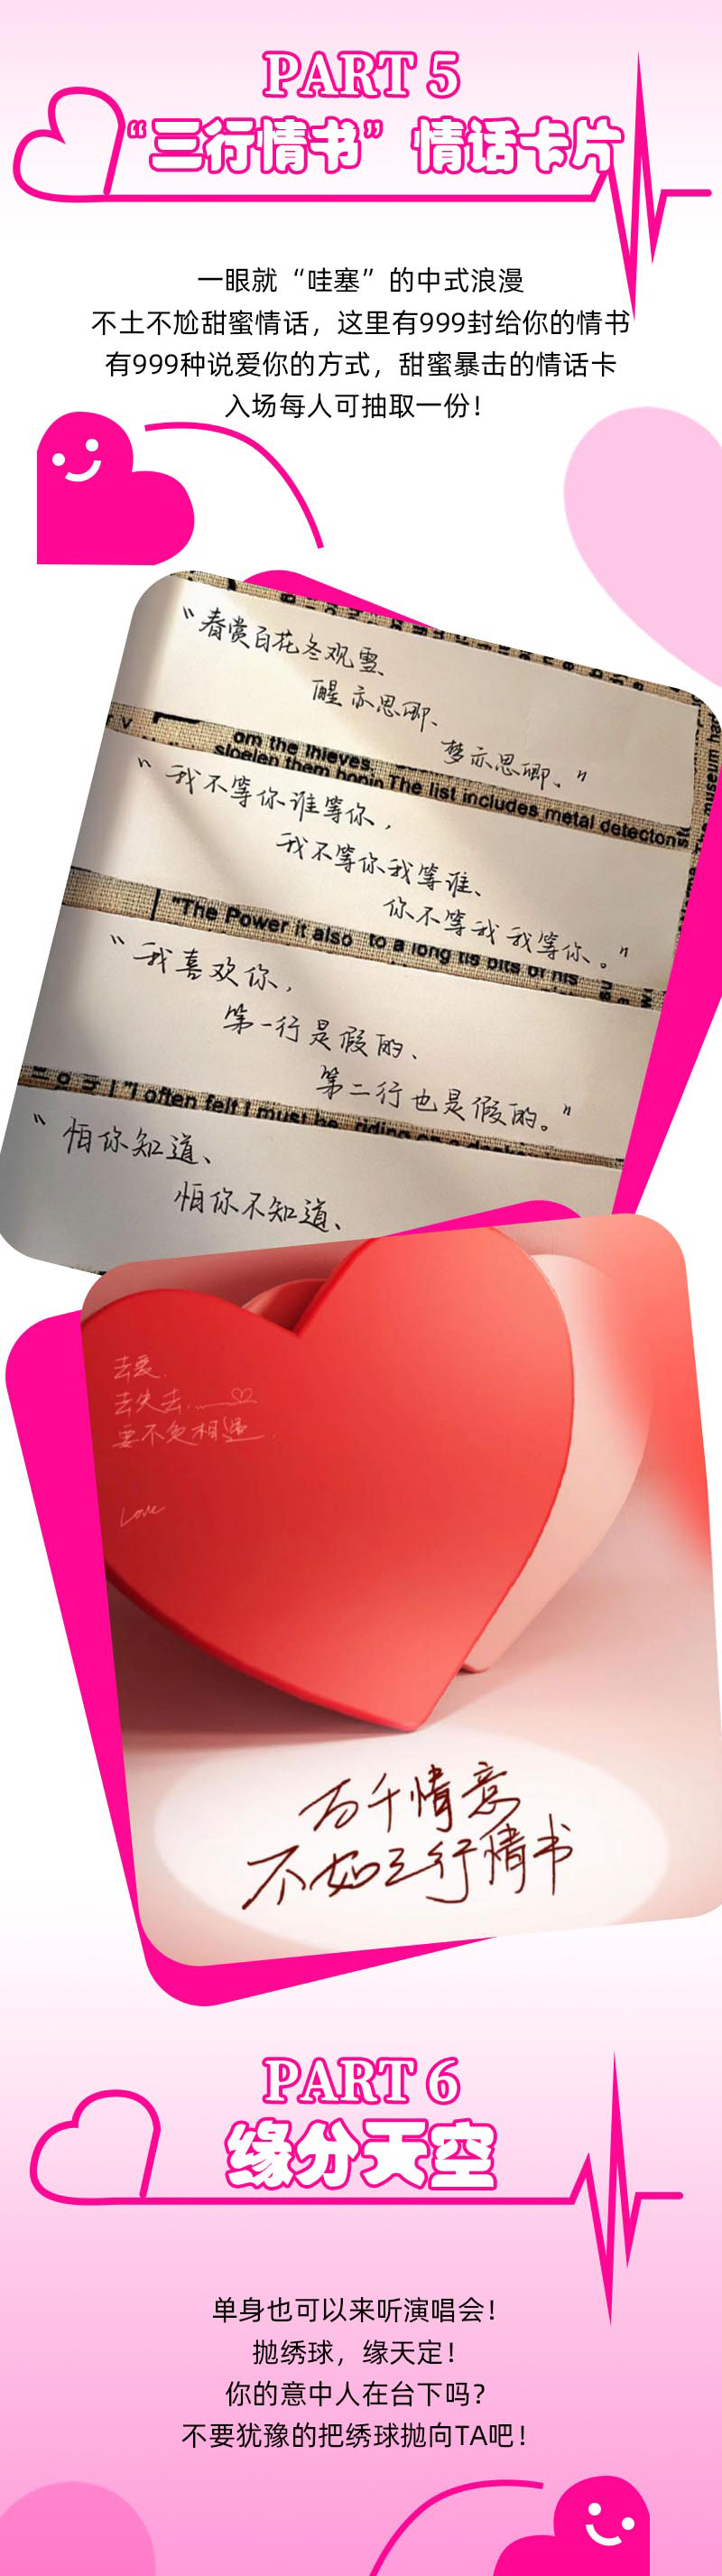 PART 5
“三行情书”情话卡片
一眼就“哇塞”的中式浪漫
不土不尬甜蜜情话，这里有999封给你的情书
有999种说爱你的方式，甜蜜暴击的情话卡
入场每人可抽取一份！
“春赏百花冬观雪、
醒亦思卿、
梦亦思卿、”
om the thieves.
The list includes metal detectors
“我不等你谁等你，
我不等你我等谁、
你不等我我等你。”
"The Power it also to a long tis bits of his
“我喜欢你，
第一行是假的、
第二行也是假的。”
"I often felt I must be riding on a
“怕你知道、
怕你不知道、
去爱.
去失去.
要不负相遇.
Love
万千情意
不如三行情书
PART 6
缘分天空
单身也可以来听演唱会！
抛绣球，缘天定！
你的意中人在台下吗？
不要犹豫的把绣球抛向TA吧！